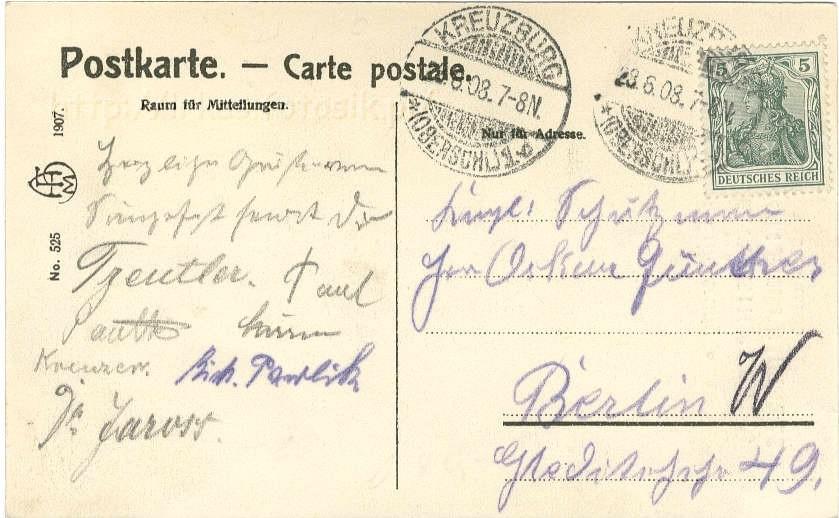 Postkarte. — Carte postale.
Raum für Mitteilungen.
Nur für Adresse.
KREUZBURG
6.08. 7-8N.
*(OBERSCHL.)
28.6.08. 7-8N.
*(OBERSCHL.)
5 5
DEUTSCHES REICH
1907.
No. 525
Herzliche
sendet Dir
Tzeutler. Paul
Kreuzer. Pawlik
Dr Jaross.
Königl: Schutzmann
Herrn Oskar Günther
Berlin W
Gleditschstr 49.